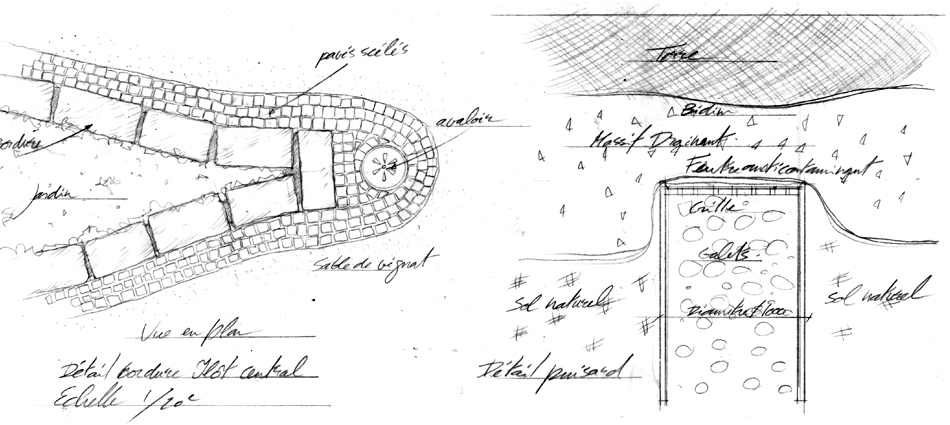 pavés scélés
avaloir
bordure
Jardin
Sable de vignat
Vue en plan
Détail bordure Ilôt central
Echelle 1/20e
Terre
Bidim
Massif Drainant
Feutre anticontaminant
Grille
Galets
Sol naturel
Sol naturel
Diamètre 1000
Détail puisard